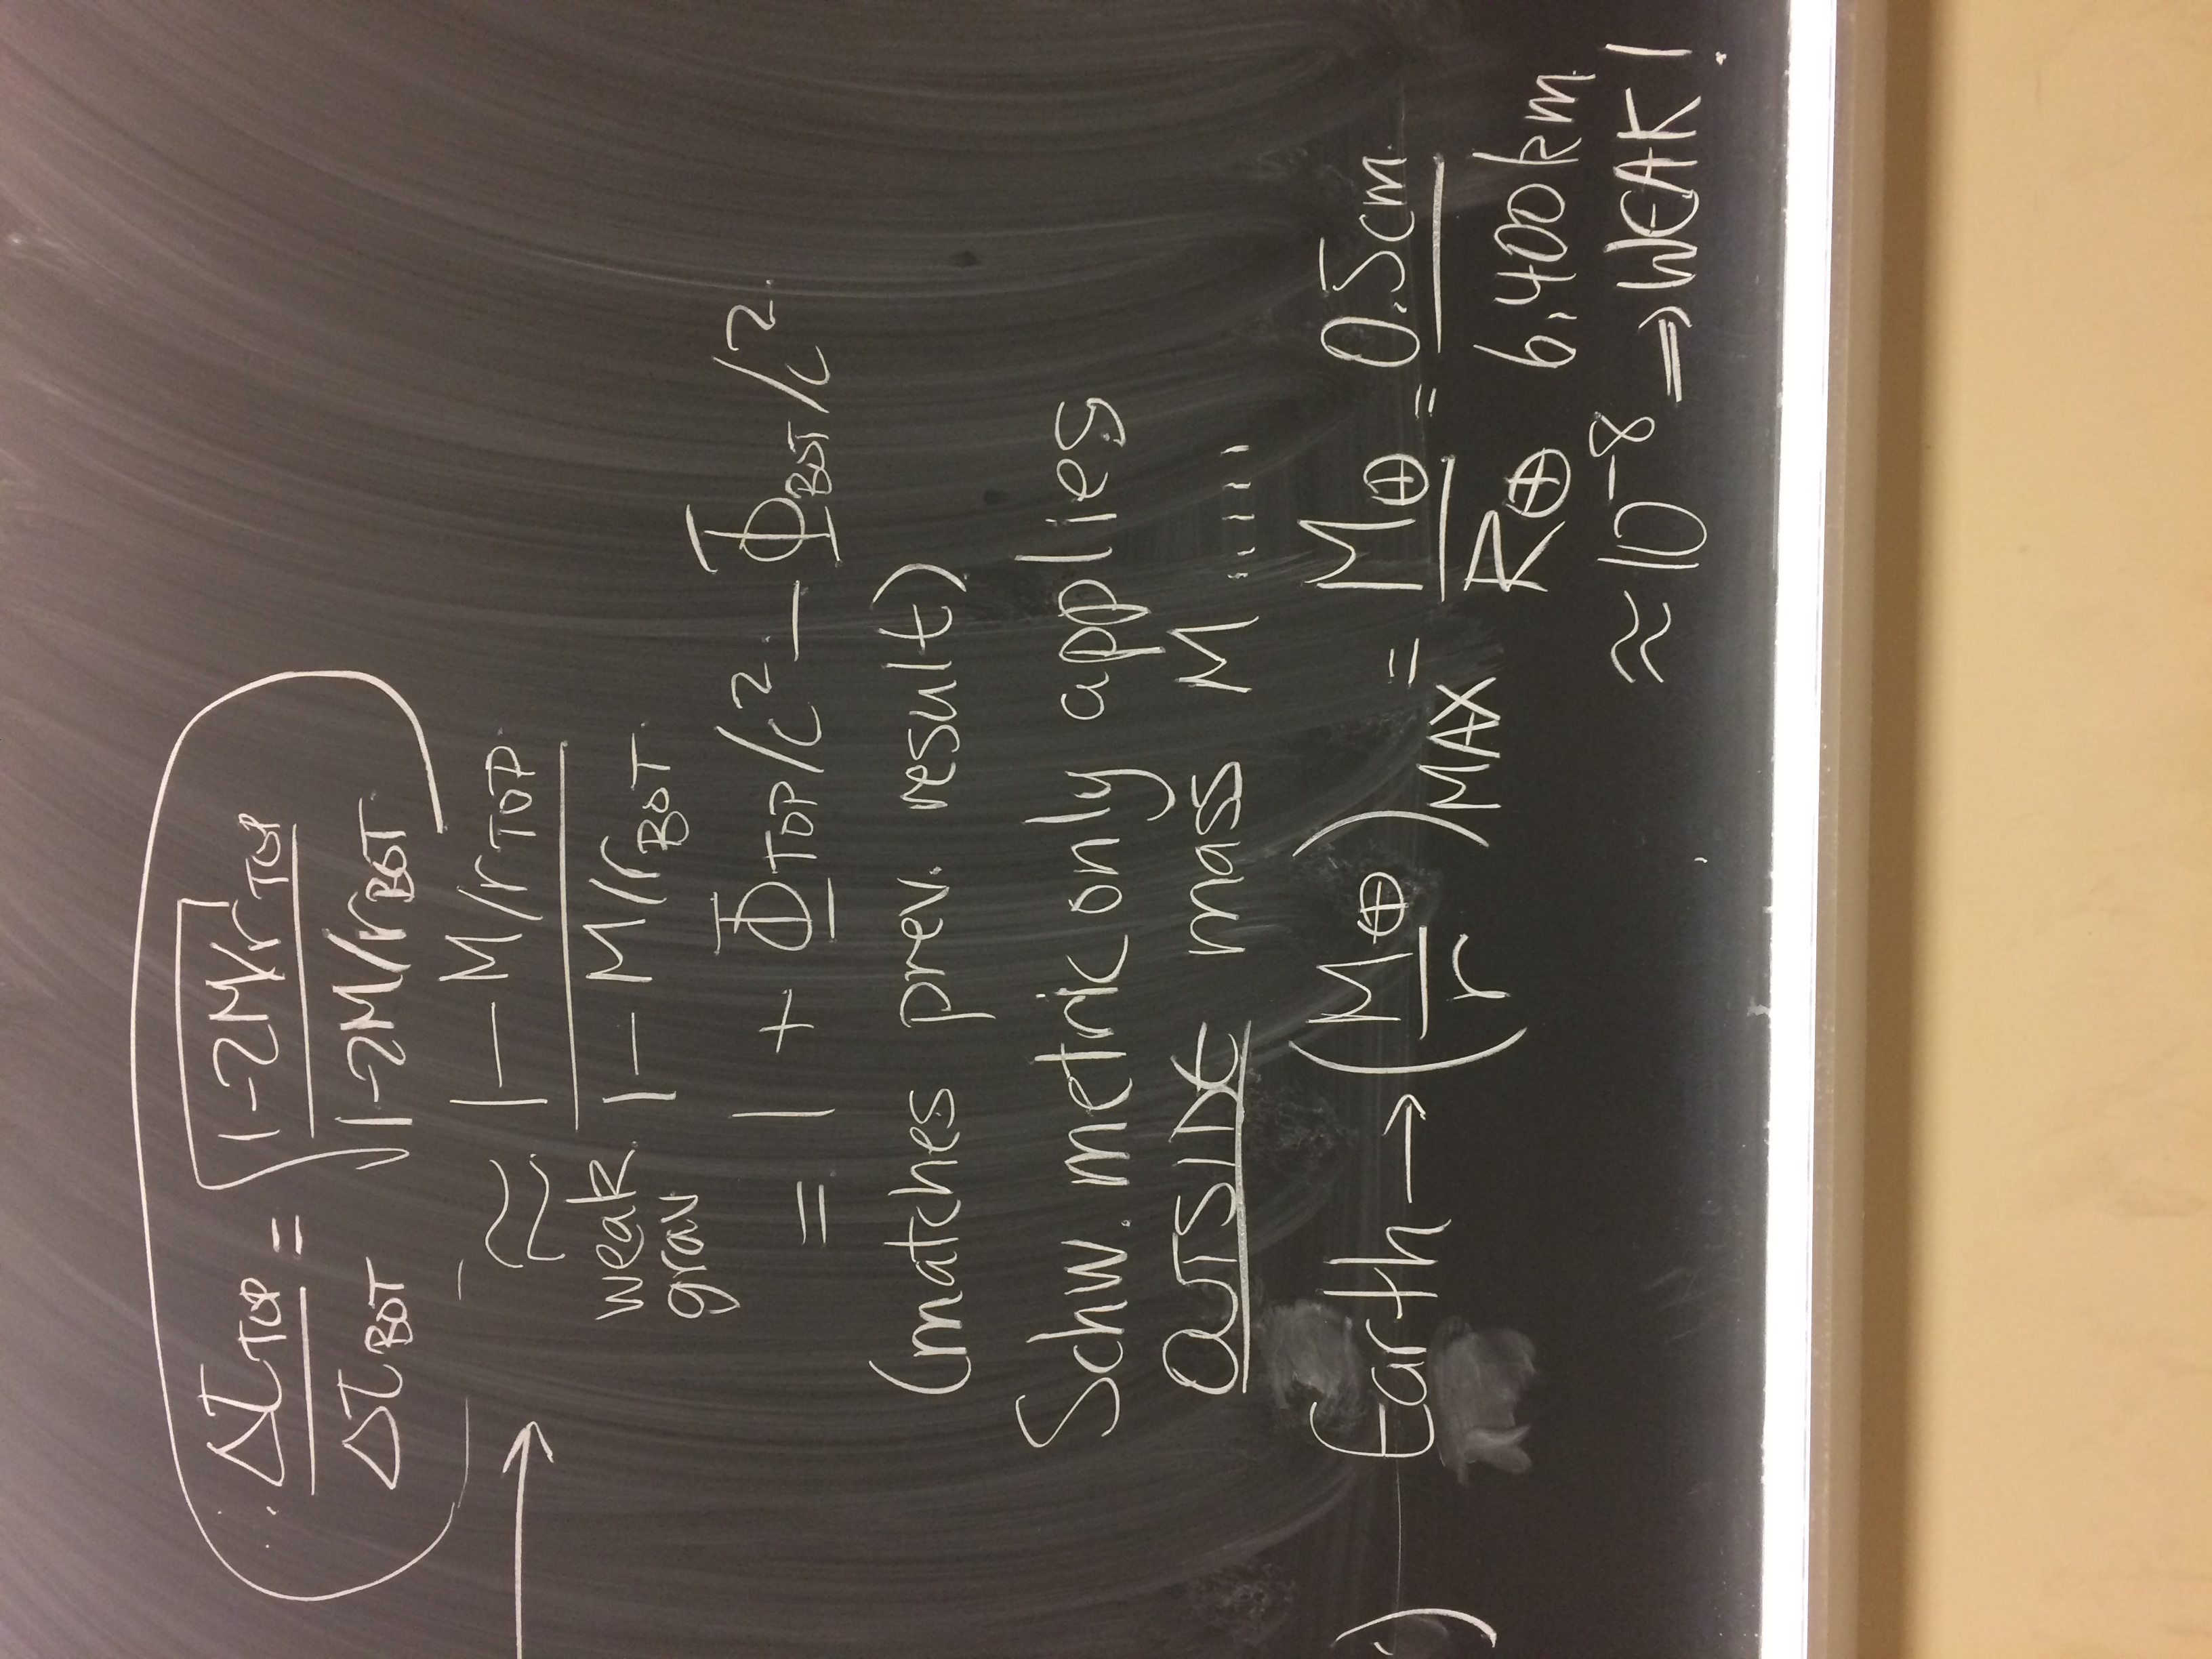 Δτ_TOP / Δτ_BOT = √(1-2M/r_TOP) / √(1-2M/r_BOT)
≈ weak grav (1-M/r_TOP) / (1-M/r_BOT)
= 1 + Φ_TOP/c² - Φ_BOT/c²
(matches prev. result)
Schw. metric only applies
OUTSIDE mass M .....
Earth → (M⊕/r)_MAX = M⊕/R⊕ = 0.5cm/6,400km
≈ 10⁻⁸ ⇒ WEAK!
)